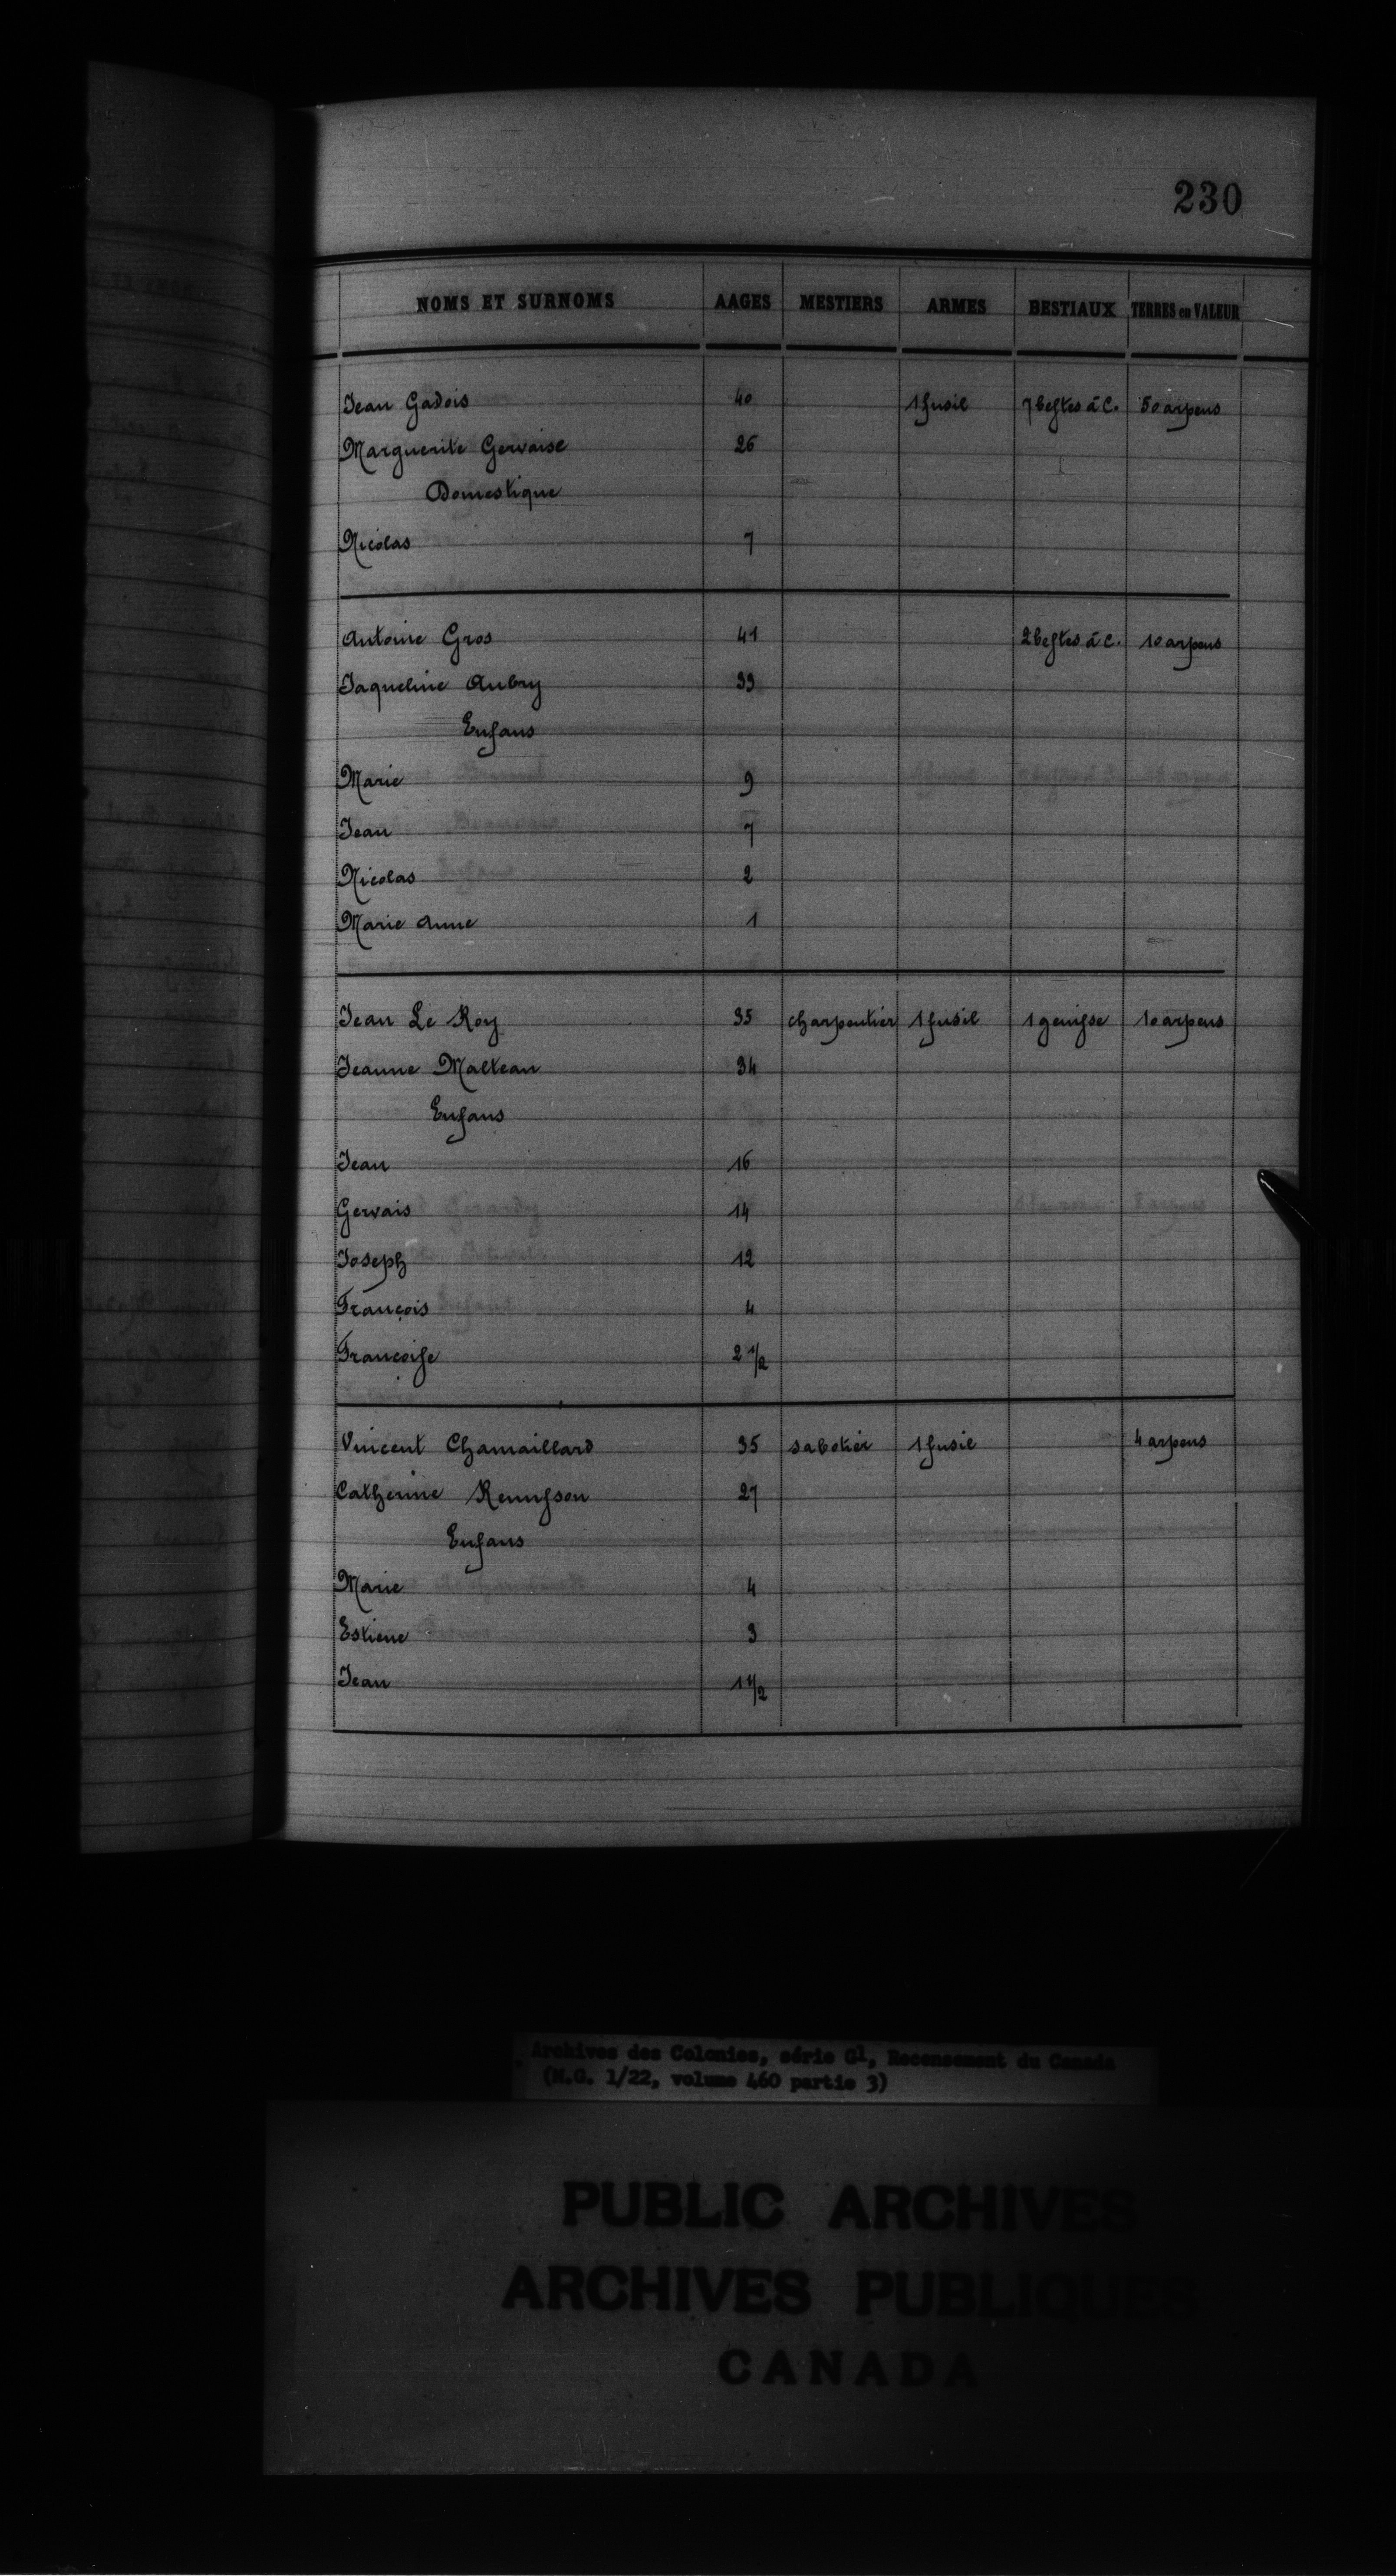 230
NOMS ET SURNOMS AAGES MESTIERS ARMES BESTIAUX TERRES en VALEUR
Jean Gadois 40 1 fusil 7 bestes à C. 50 arpens
Marguerite Gervaise 26
Domestique
Nicolas 7
Antoine Gros 41 2 bestes à C. 10 arpens
Jaqueline Aubry 33
Enfans
Marie 9
Jean 7
Nicolas 2
Marie Anne 1
Jean Le Roy 35 charpentier 1 fusil 1 genisse 10 arpens
Jeanne Malteau 34
Enfans
Jean 16
Gervais 14
Joseph 12
François 4
Françoise 2 1/2
Vincent Chamaillard 35 sabotier 1 fusil 4 arpens
Catherine Renusson 27
Enfans
Marie 4
Estiene 3
Jean 1 1/2
Archives des Colonies, série G1, Recensement du Canada
(M.G. 1/22, volume 460 partie 3)
PUBLIC ARCHIVES
ARCHIVES PUBLIQUES
CANADA